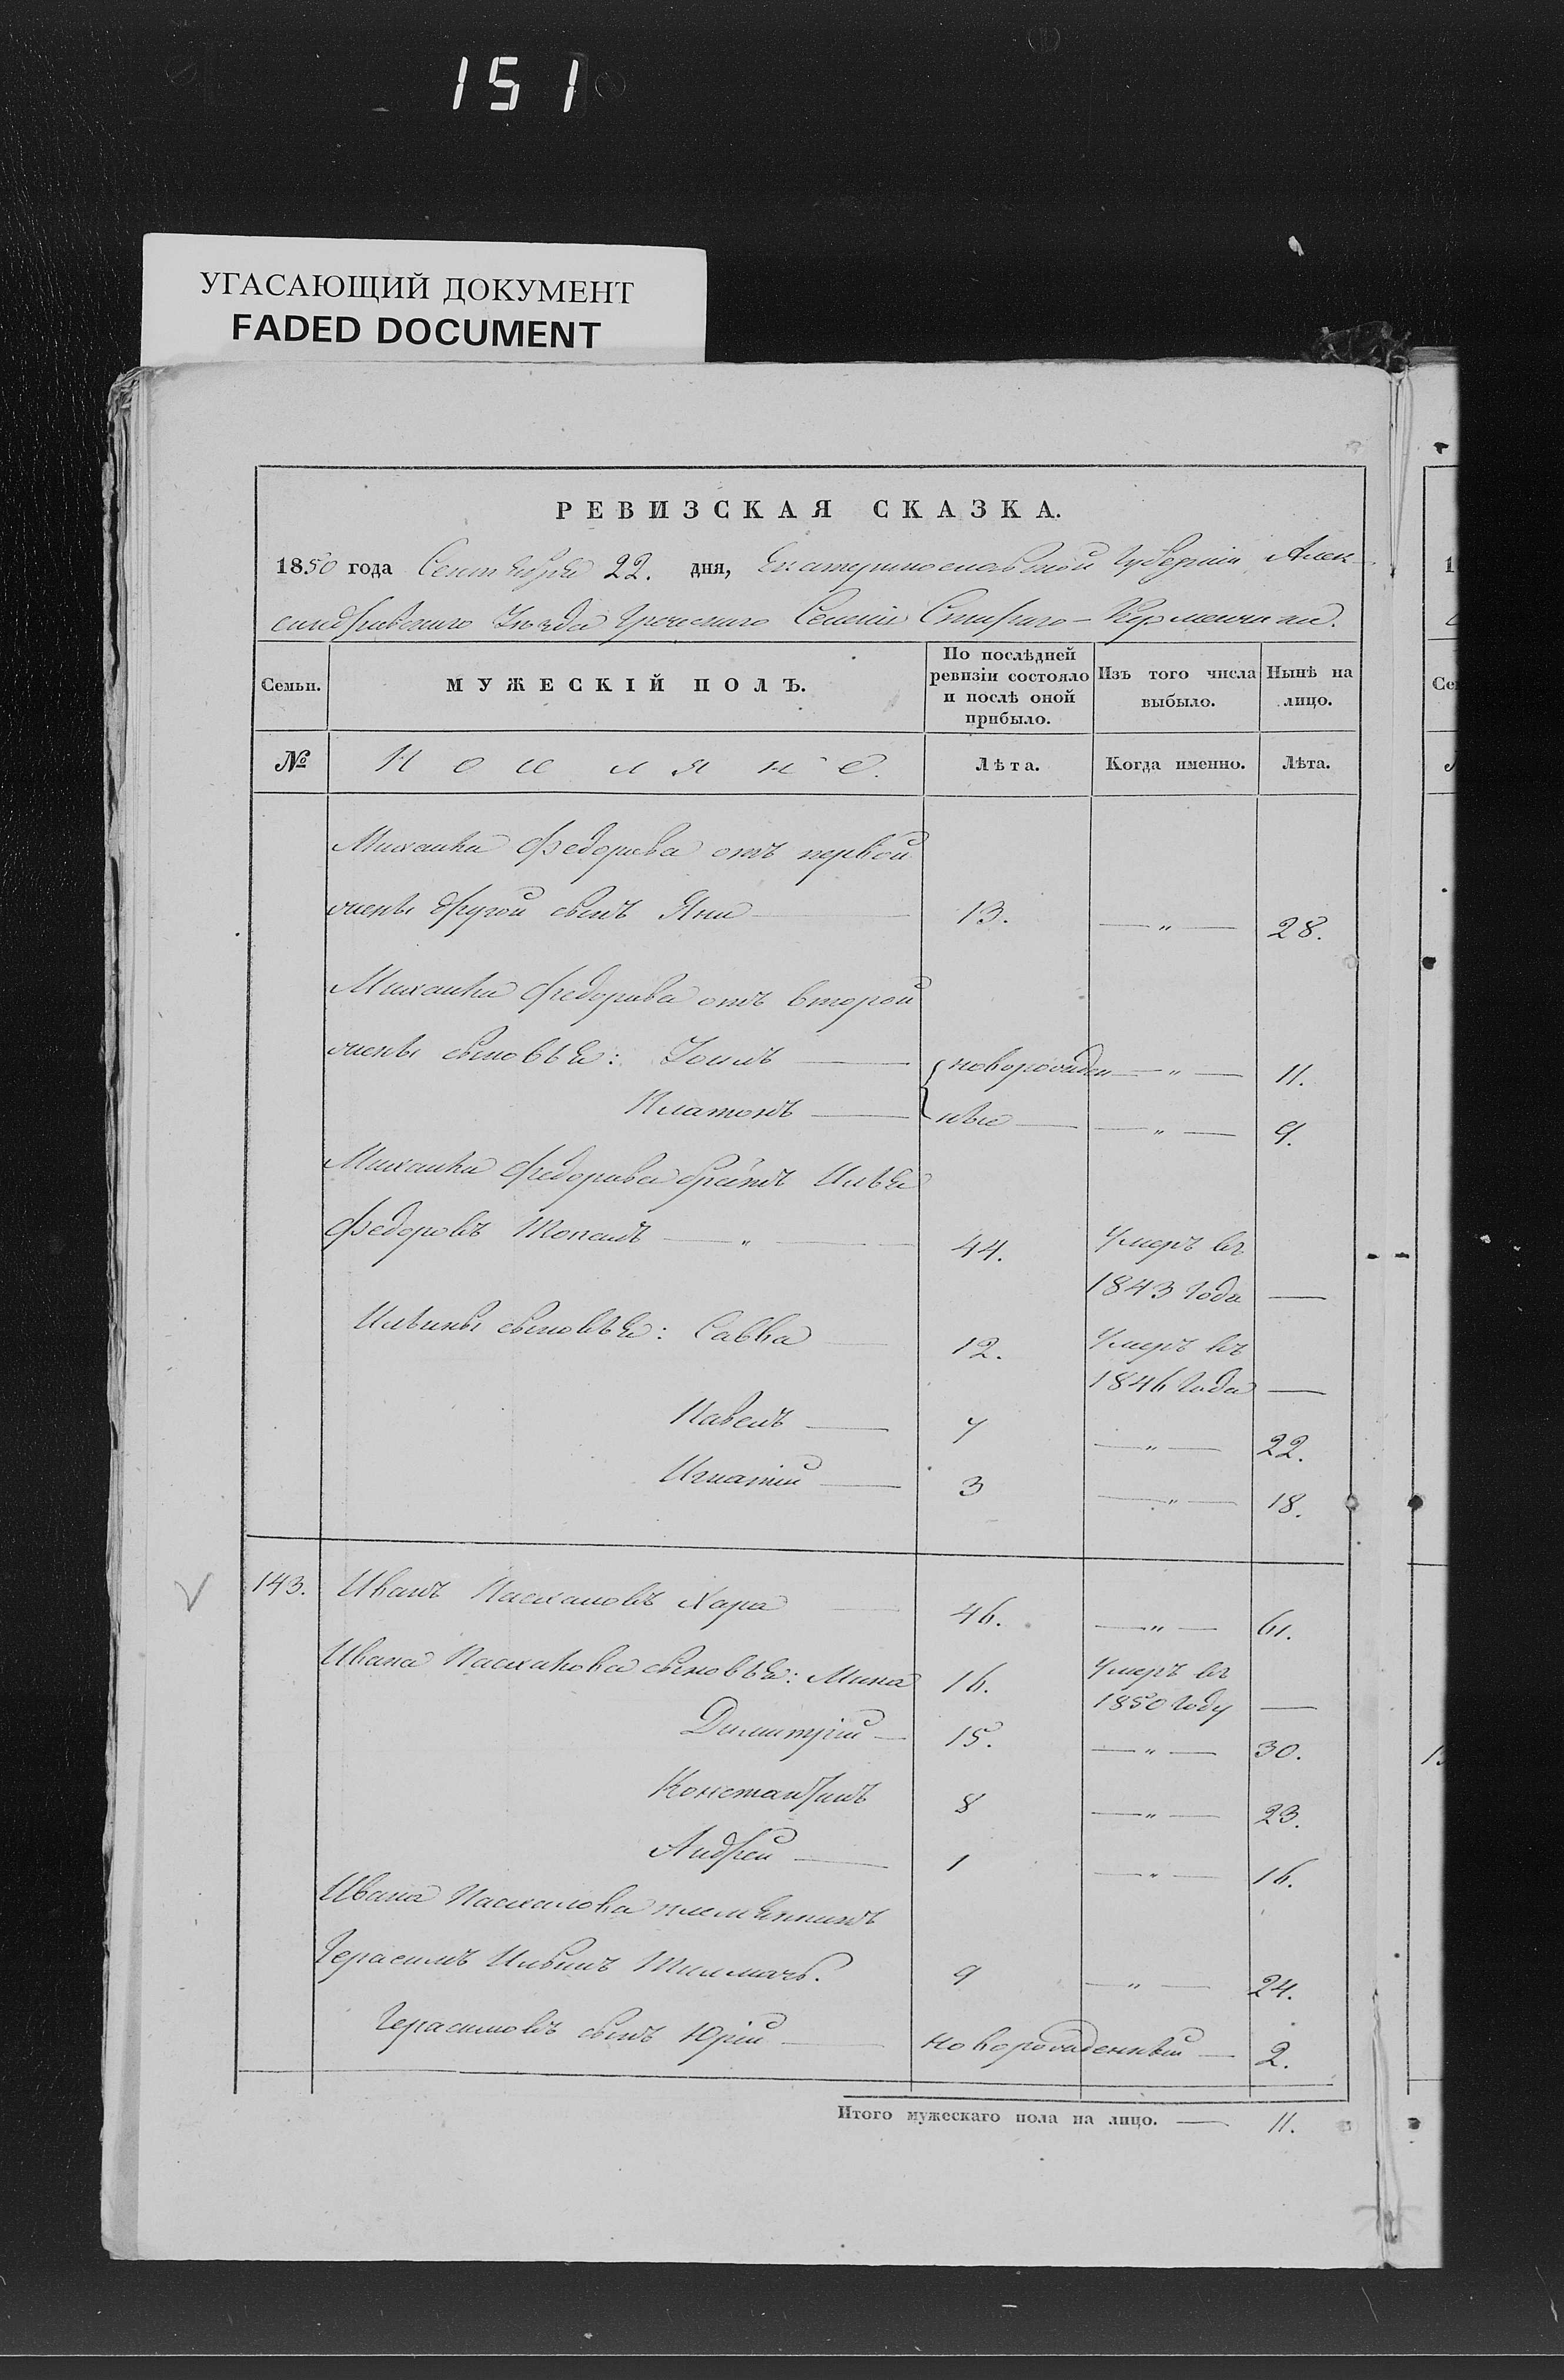 151
УГАСАЮЩИЙ ДОКУМЕНТ
FADED DOCUMENT
РЕВИЗСКАЯ СКАЗКА.
1850 года Сентября 22. дня, Екатеринославской Губерніи Алек-
сандравскаго Уѣзда Греческаго Селенія Стараго-Керменчика.
Семьи. МУЖЕСКІЙ ПОЛЪ. По послѣдней ревизіи состояло и послѣ оной прибыло. Изъ того числа выбыло. Нынѣ на лицо.
№ Поселяне. Лѣта. Когда именно. Лѣта.
Михаила Федорова отъ первой
жены другой сынъ Яни 13. — " — 28.
Михаила Федорова отъ второй
жены сыновья: Іоилъ новорожден — " — 11.
Платонъ ные — " — 9.
Михаила Федорова братъ Илья
Федоровъ Топалъ — " — 44. Умеръ въ
1843 года —
Ильины сыновья: Савва 12. Умеръ въ
1846 года —
Павелъ 7 — " — 22.
Игнатій 3 — " — 18.
143. Иванъ Пасхаловъ Хара 46. — " — 61.
Ивана Пасхалова сыновья: Мина 16. Умеръ въ
1850 году —
Димитрій 15. — " — 30.
Константинъ 8 — " — 23.
Андрей 1 — " — 16.
Ивана Пасхалова племянникъ
Герасимъ Ильинъ 9 — " — 24.
Герасимовъ сынъ Юрій новорожденный — 2.
Итого мужескаго пола на лицо. — 11.